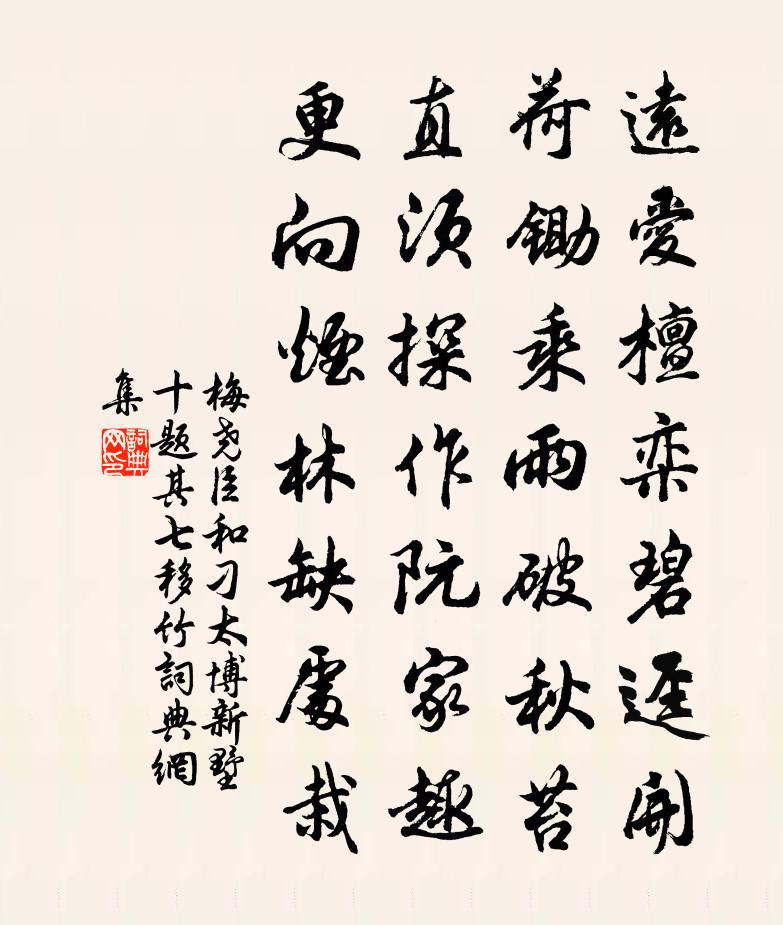 遠愛檀栾碧逕開
荷鋤乘雨破秋苔
直須探作阮家趣
更向煙林缺處栽
梅堯臣和刁太博新墅
十題其七移竹詞典網
集
詞典
网印